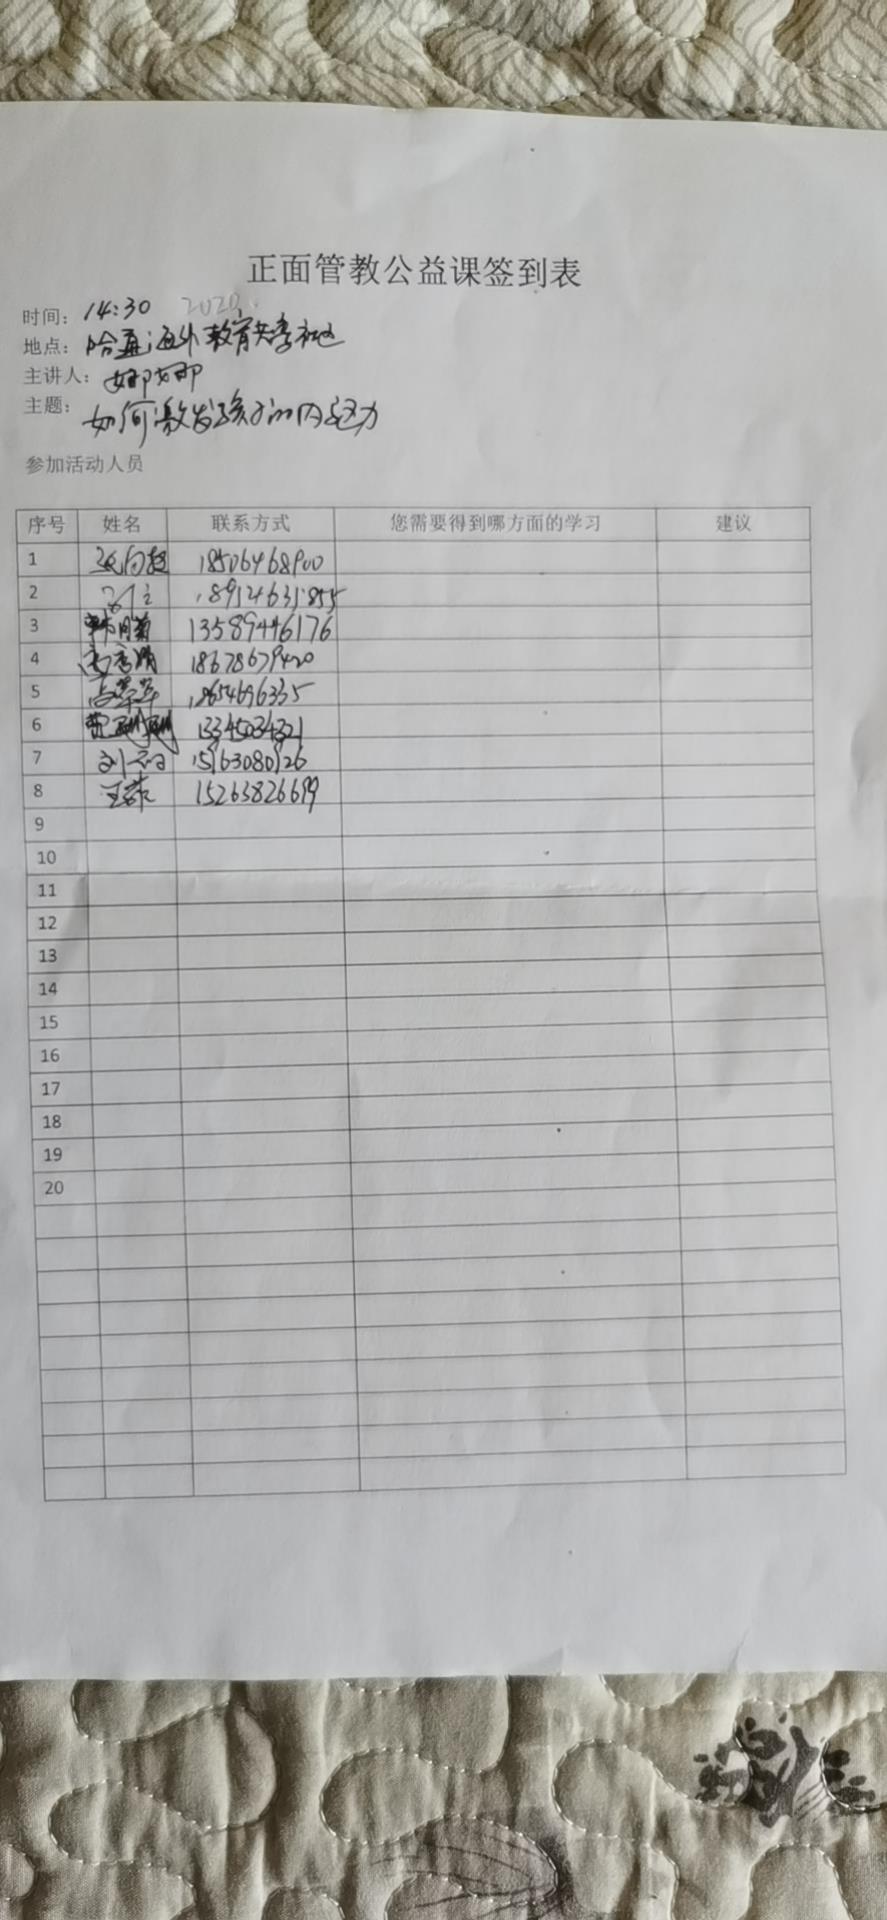 正面管教公益课签到表
时间：14:30 2020.
地点：哈 海外教育共享社区
主讲人：娜娜
主题：如何激发孩子的内驱力
参加活动人员
序号 姓名 联系方式 您需要得到哪方面的学习 建议
1 18506468900
2 189124631855
3 13589446176
4 高秀娟 18678679420
5 高苹苹
6 13345034321
7 刘 15163080126
8 王燕 15263826699
9
10
11
12
13
14
15
16
17
18
19
20